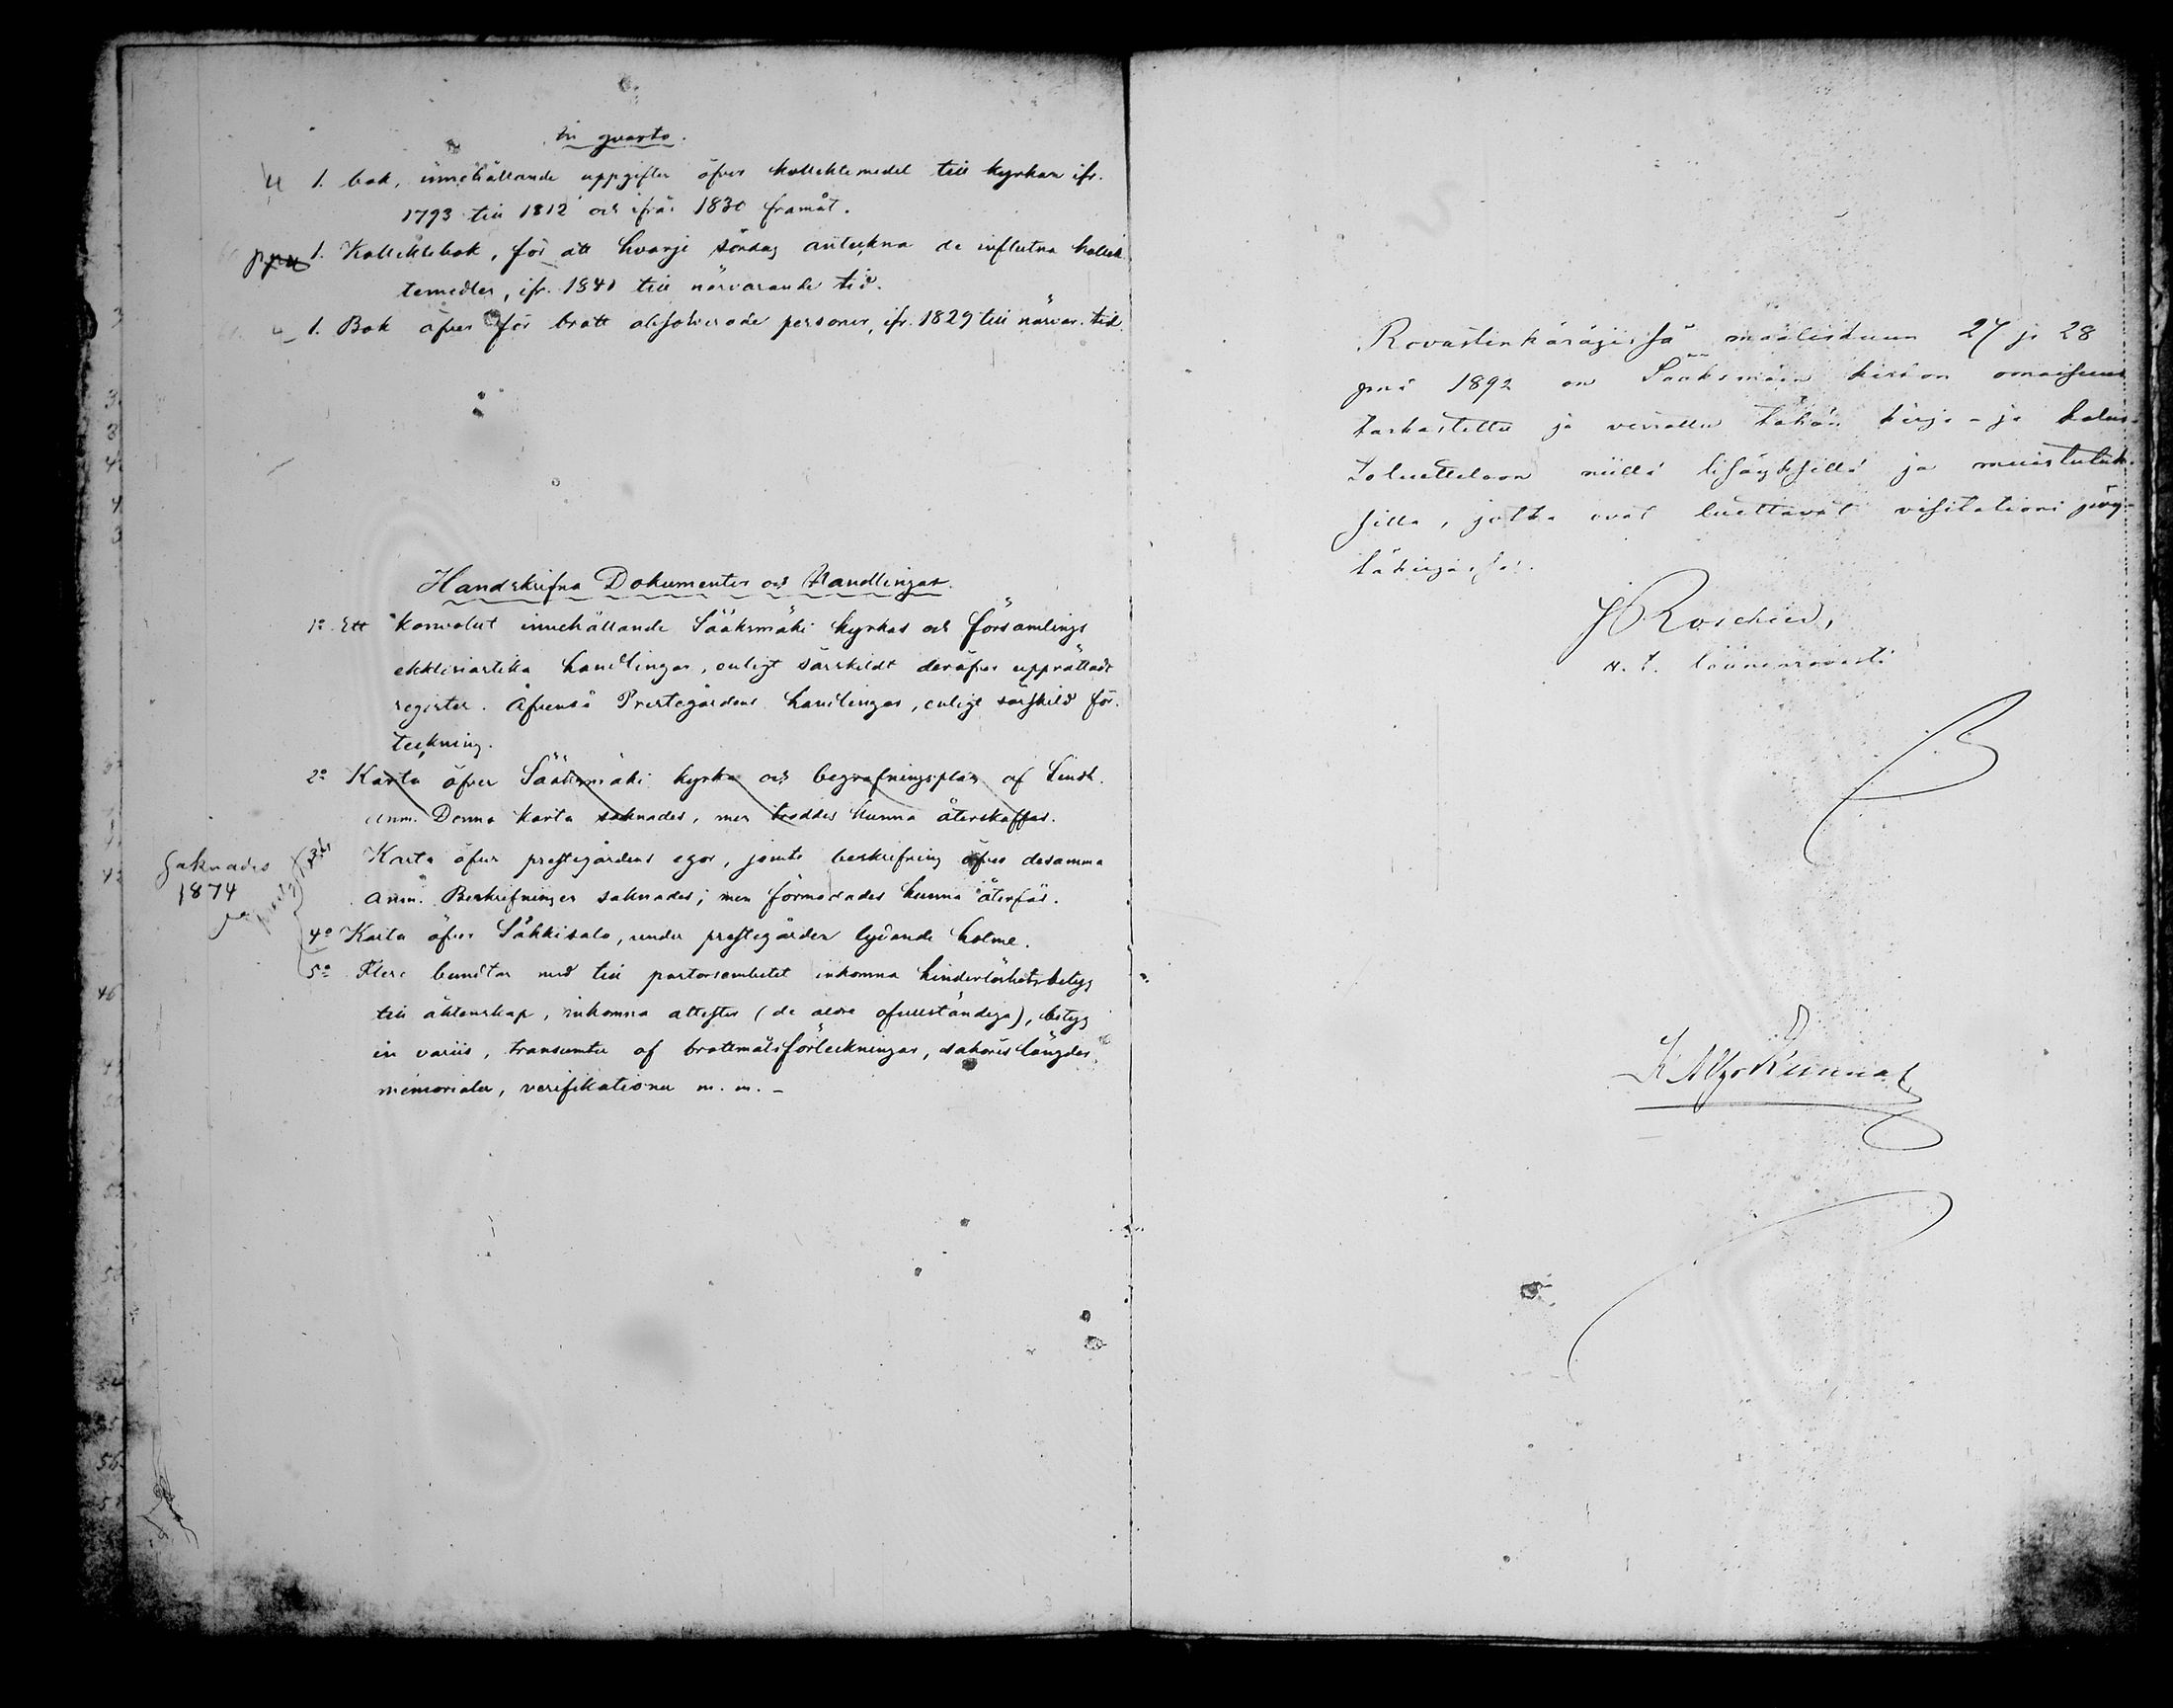 in quarto.
4 1. bok, innehållande uppgifter öfver kollektemedel till kyrkan ifr.
1793 till 1812 och ifrån 1830 framåt.
1. Kollektebok, för att hvarje söndag anteckna de influtna kollek
temedlen, ifr. 1840 till närvarande tid.
4 1. Bok öfver för brott absolverade personer, ifr. 1829 till närvar. tid
Handskrifna Dokumenter och Handlingar.
1o Ett konvolut innehållande Sääksmäki kyrkas och församlings
ekklesiastika handlingar, enligt särskildt deröfver upprättadt
register. Äfvenså Prestegårdens handlingar, enligt särskild för-
teckning.
2o Karta öfver Sääksmäki kyrka och begrafningsplats af Lindh.
Anm. Denna karta saknades, men troddes kunna återskaffas.
3o Karta öfver prestegårdens egor, jemte beskrifning öfver desamma
Anm. Beskrifningen saknades, men förmodades kunna återfås.
Saknades
1874
4o Karta öfver Säkkisalo, under prestegården lydande holme.
5o Flere bundtar med till pastorsembetet inkomna hinderlöshetsbetyg
till äktenskap, inkomna attester (de äldre ofullständiga), betyg
in variis, transumter af brottmålsförteckningar, saköreslängder
memorialer, verifikationer m. m. –
Rovastinkäräjissä maaliskuun 27 ja 28
pnä 1892 on Sääksmäen kirkon omaisuus
tarkastettu ja verrattu tähän kirja- ja kalus-
toluetteloon niillä lisäyksillä ja muistutuk-
silla, jotka ovat luettavat visitationi pöy-
täkirjassa.
J Roschier,
v. t. lääninrovasti
K Alfr Kunnas